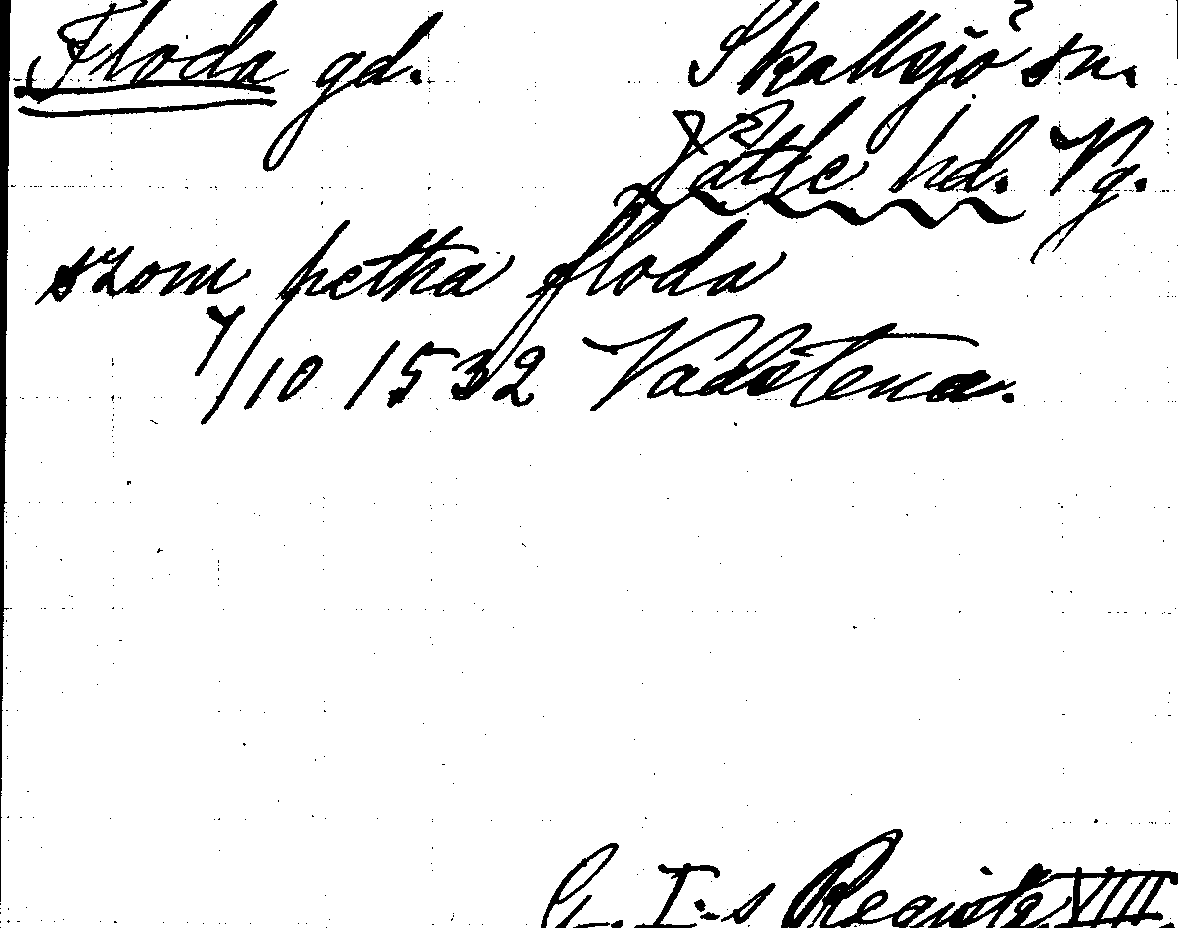 Floda gd. Skallsjö? sn.
Vättle hd. Vg.
szom hetha floda
7/10 1532 Vadstena.
G. I-s Registr. VIII.